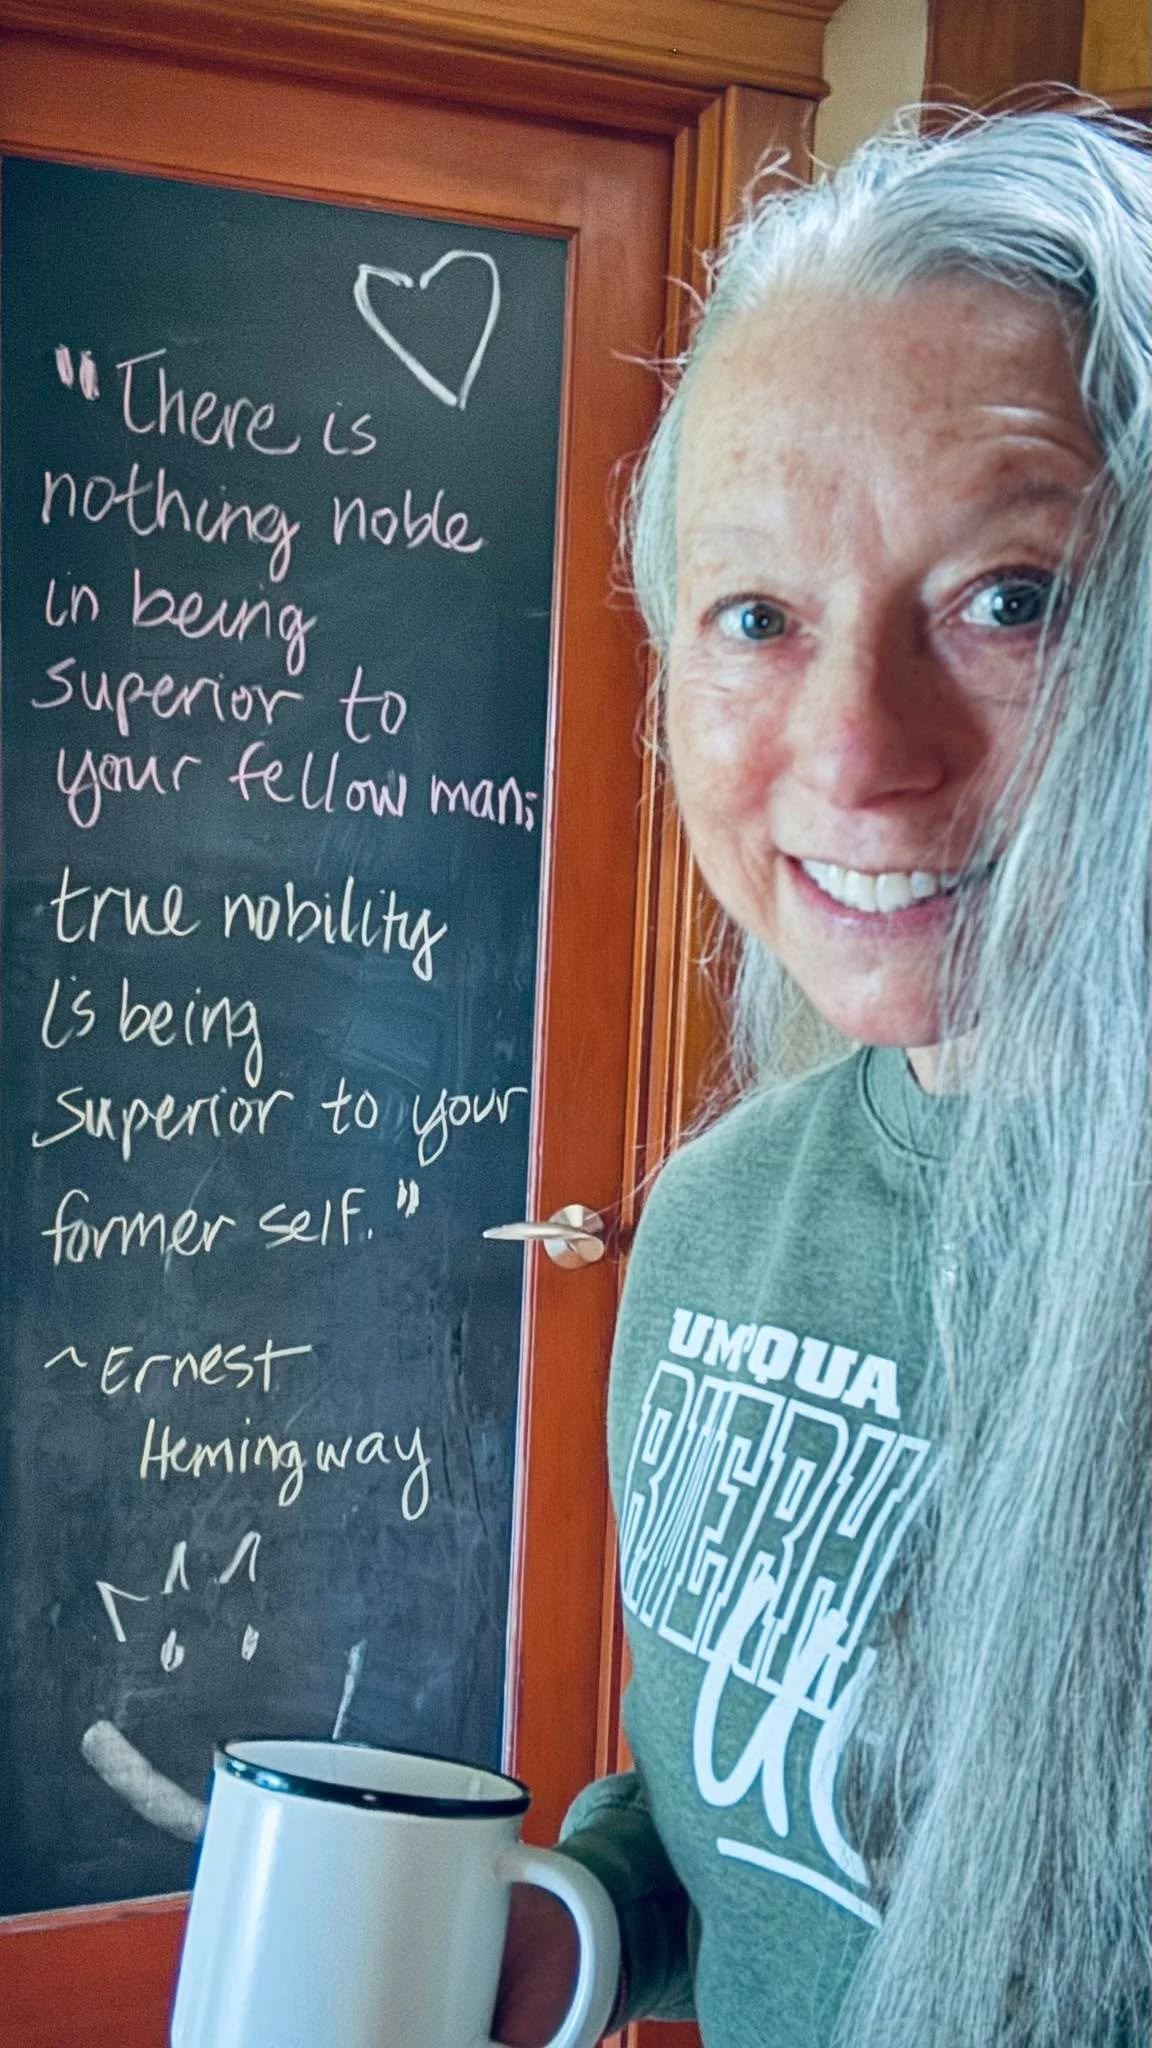 "There is
nothing noble
in being
superior to
your fellow man;
true nobility
is being
superior to your
former self."
~Ernest
Hemingway
UMPQUA